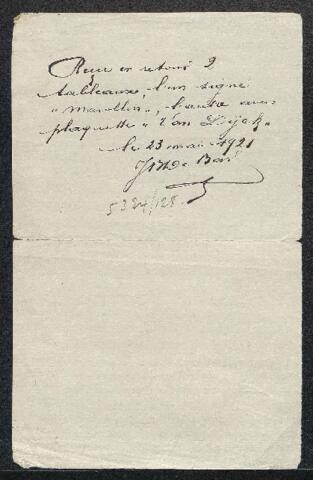 Reçu en retour 2
tableaux, l'un signé
"Marellin", l'autre avec
plaquette "Van Dijck"
le 23 mai 1921
5384/128